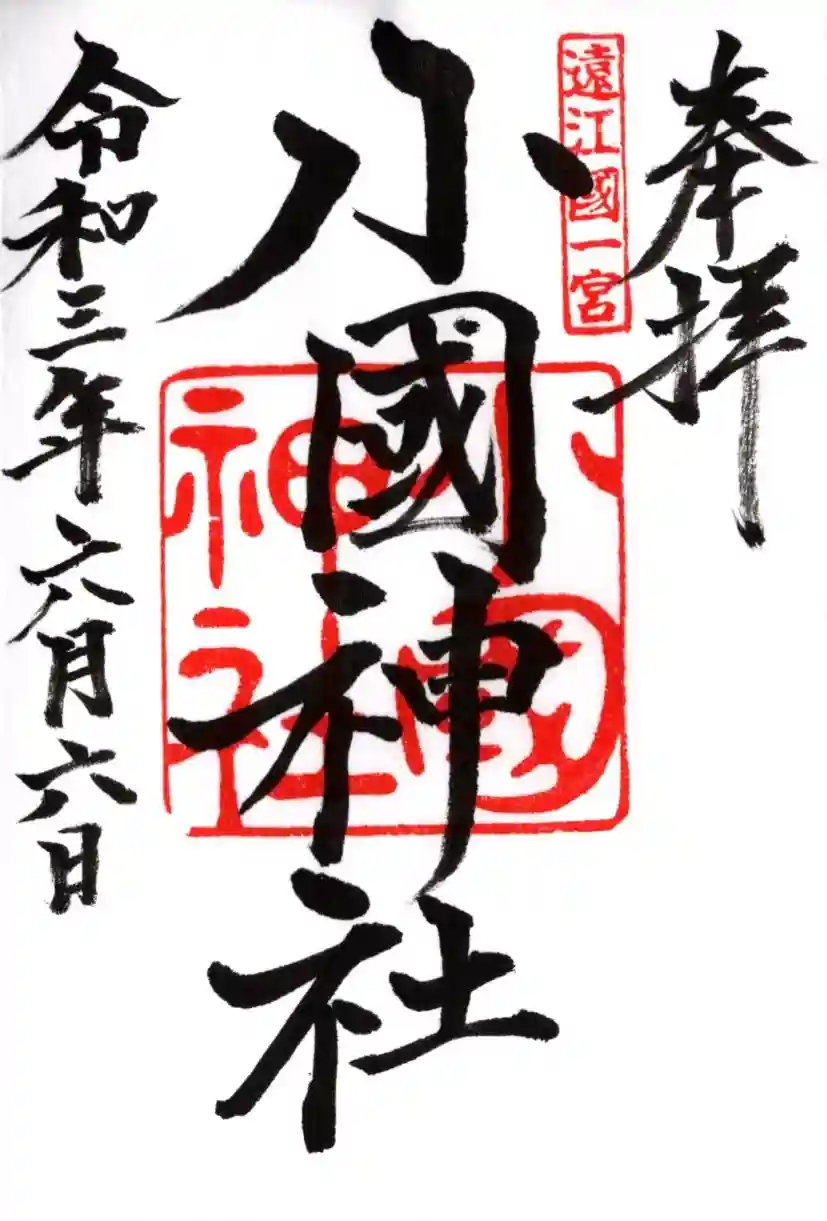 奉拝
遠江國一宮
小國神社
小國
神社
令和三年六月六日